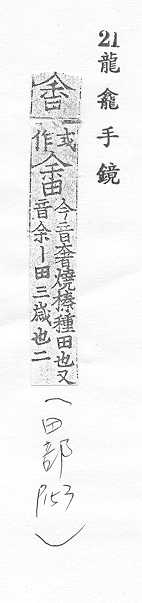 21龍龕手鏡
畬
或作畬
今音奢燒榛種田也又
音余丨田三歳也二
(田部
P153)